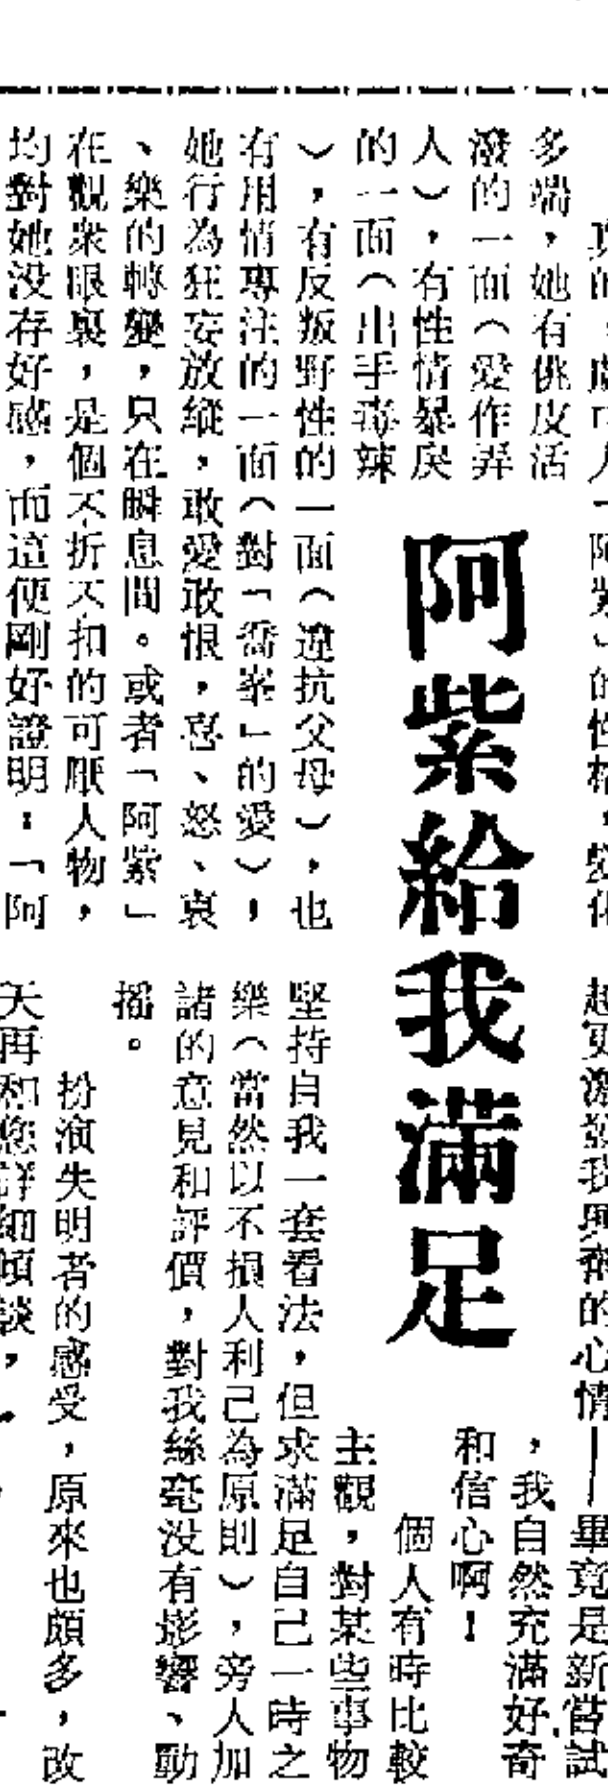 阿紫給我滿足
真的，戲中人「阿紫」的性格，變化
多端，她有佻皮活
潑的一面（愛作弄
人），有性情暴戾
的一面（出手毒辣
），有反叛野性的一面（違抗父母），也
有用情專注的一面（對「喬峯」的愛），
她行為狂妄放縱，敢愛敢恨，喜、怒、哀
、樂的轉變，只在瞬息間。或者「阿紫」
在觀衆眼裏，是個不折不扣的可厭人物，
均對她没存好感，而這便剛好證明：「阿
起更激發我興奮的心情——畢竟是新嘗試
，我自然充滿好奇
和信心啊！
個人有時比較
主觀，對某些事物
堅持自我一套看法，但求滿足自己一時之
樂（當然以不損人利己為原則），旁人加
諸的意見和評價，對我絲毫没有影響、動
搖。
扮演失明者的感受，原來也頗多，改
天再和您詳細傾談，